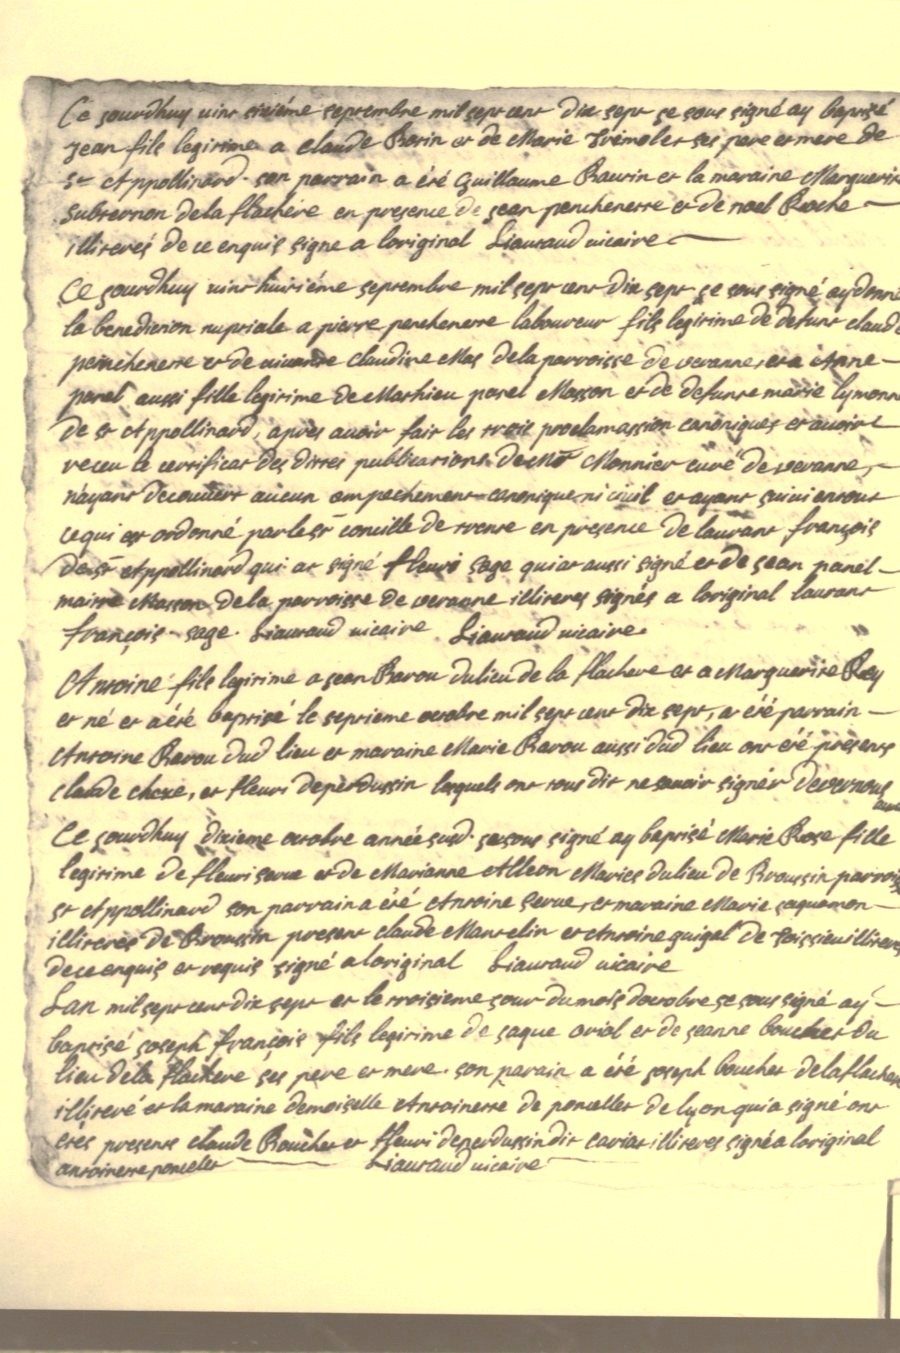 Ce jourdhuy vint sixiéme septembre mil sept cent dix sept je sous signé ay baptisé
jean fils legitime a claude Barin et de Marie tremolet ses pere et mere de
st Appollinard. son parrain a été guillaume Baurin et la maraine Marguerite
Subternon de la flachére en presence de jean penchenette et de noel Roche
illiterés de ce enquis signe a loriginal Liauraud vicaire
Ce jourdhuy vint huitiéme septembre mil sept cent dix sept je sous signé ay donné
la benediction nuptiale a pierre penchenette laboureur fils legitime de defunt claude
penchenette et de vivante claudine Mas de la parroisse de veranne et a Anne
panel aussi fille legitime de Mathieu panel Masson et de defunte marie lymonne
de st Appollinard, aprés avoir fait les trois proclamassion canoniques et avoir
receu le certificat des dittes publications de Mr Monnier curé de veranne,
n'ayant decouvert aucun empechement canonique ni civil et ayant suivi en tout
ce qui est ordonné par le st concille de trente en presence de laurant françois
de st Appollinard qui at signé fleuri sage qui at aussi signé et de jean panel
maitre Masson de la parroisse de veranne illiteres signés a loriginal laurant
françois. sage. Liauraud vicaire Liauraud vicaire.
Antoine fils legitime a jean Barou du lieu de la flachere et a Marguerite Rey
et né et a été baptisé le septieme octobre mil sept cent dix sept, at été parrain
Antoine Barou dud lieu et maraine Marie Barou aussi dud lieu ont été présents
claude choxe, et fleuri deperdussin lesquels ont tous dit ne savoir signér devernous
Ce jourdhuy dixieme octobre année susd. je sous signé ay baptisé Marie Rose fille
legitime de fleuri serve et de Marianne Alleon Mariés du lieu de Broussin parroisse
st Appollinard son parrain a été Antoine serve, et maraine Marie jaquemon
illiterés de Broussin present claude Mantelin et Antoine guigal de toissieu illiteres
de ce enquis et requis signé a loriginal Liauraud vicaire
Lan mil sept cent dix sept et le troisieme jour du mois doctobre je sous signé ay
baptisé joseph françois fils legitime de jaque oriol et de jeanne boucher du
lieu de la flachere ses pere et mere. son parain a été joseph boucher de la flachere
illiteré et la maraine demoiselle Antoinette de poncellet de lyon qui a signé ont
etés presents claude Boucher et fleuri deperdussin dit caviat illiteres signé a loriginal
antoinette poncelet Liauraud vicaire